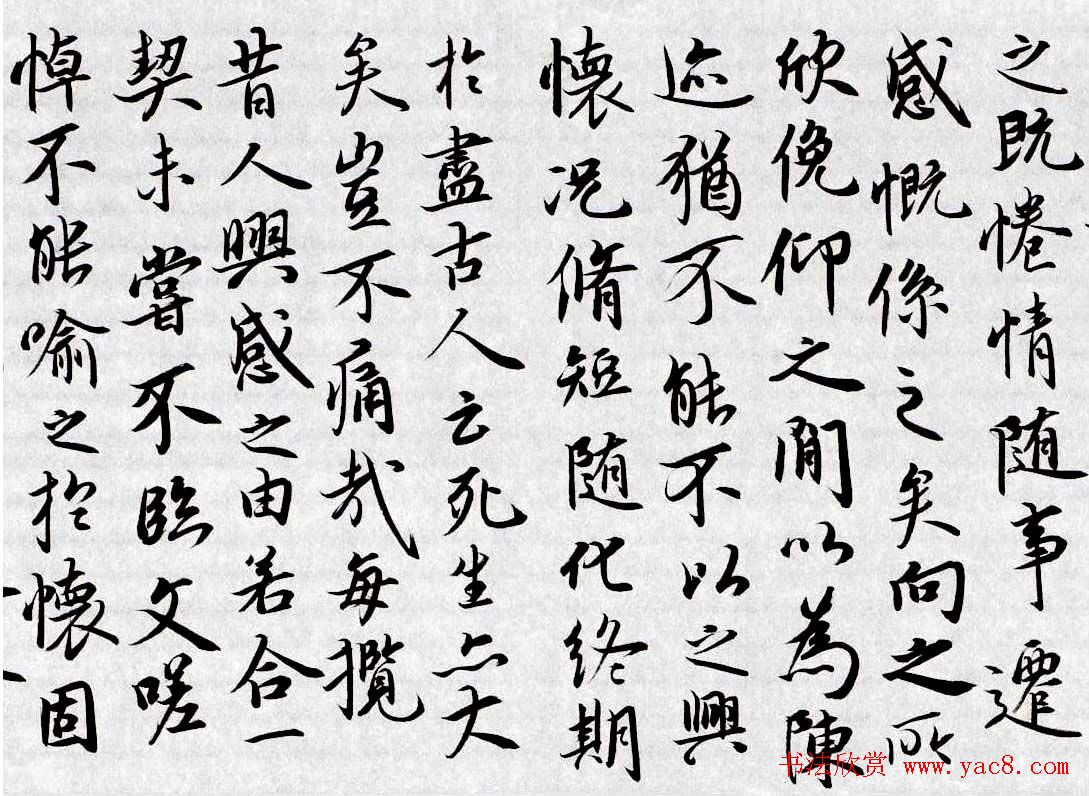 之既惓情随事遷
感慨係之矣向之所
欣俛仰之閒以為陳
迹猶不能不以之興
懷况脩短随化終期
於盡古人云死生亦大
矣豈不痛哉每攬
昔人興感之由若合一
契未嘗不臨文嗟
悼不能喻之於懷固
书法欣赏 www.yac8.com